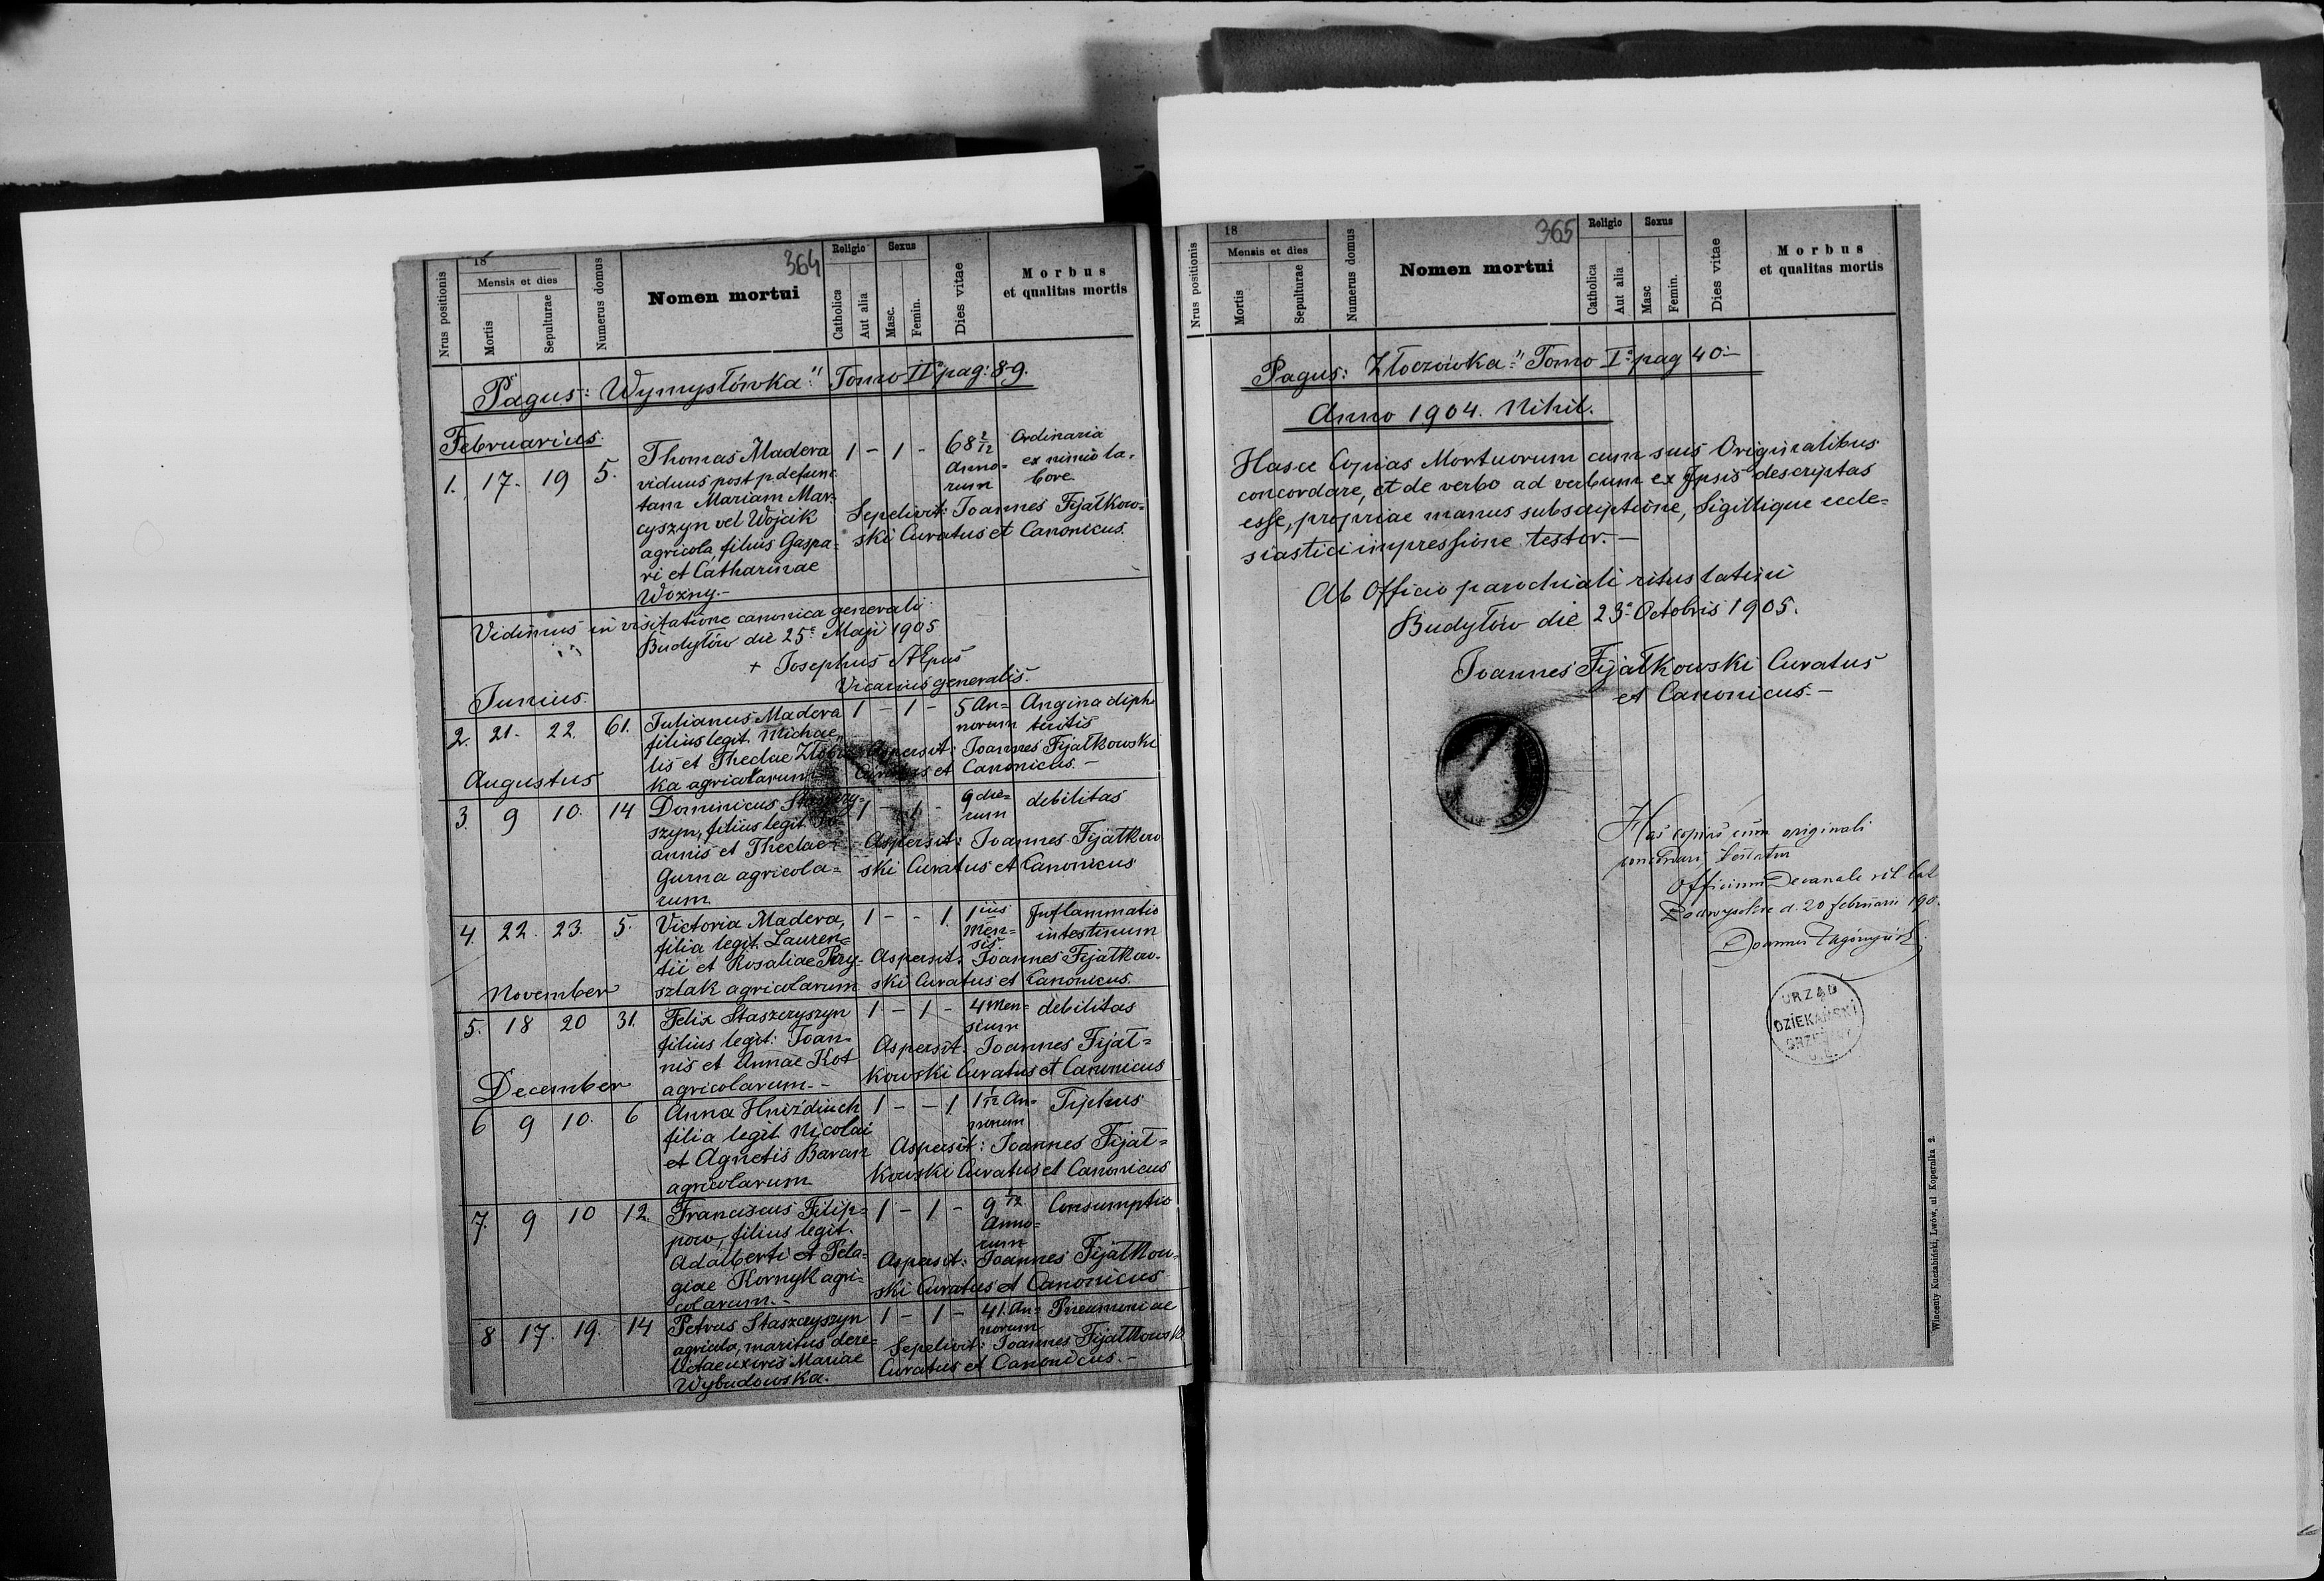 364
18
Mensis et dies
Religio
Sexus
Nrus positionis
Mortis
Sepulturae
Numerus domus
Nomen mortui
Catholica
Aut alia
Masc.
Femin.
Dies vitae
Morbus
et qualitas mortis
Pagus: Wymysłówka" Tomo II pag: 8-9.
Februarius
1. 17. 19 5. Thomas Madera 1 - 1 - 68 2/12 Ordinaria
viduus post p. defunc- Anno= ex nimio la=
tam Mariam Mar- rum bore
cyszyn vel Wojcik Sepelivit: Joannes Fijałkow=
agricola, filius Gaspa- ski Curatus et Canonicus.
ri et Catharinae
Wozny.-
Vidimus in visitatione canonica generali
Budyłów die 25. Maji 1905
+ Josephus
Vicarius generalis.
Junius.
2. 21. 22. 61. Julianus Madera 1 - 1 - 5 An= Angina diph
filius legit. Michae= norum teritis
lis et Theclae Aspersit: Joannes Fijałkowski
ka agricolarum Curatus et Canonicus.-
Augustus
3. 9 10. 14 Dominicus 1 - 1 - 9 die= debilitas
szyn, filius legit. Jo= rum
annis et Theclae Aspersit: Joannes Fijałkow
Gurna agricola= ski Curatus et Canonicus
rum
4. 22. 23. 5. Victoria Madera, 1 - - 1 1ius Inflammatio
filia legit. Lauren= Men= intestinum
sis.
tii et Rosaliae Pery- Aspersit: Joannes Fijałkow-
sztak agricolarum ski Curatus et Canonicus.
November
5. 18 20 31. Felix Staszczyszyn 1 - 1 - 4 Men= debilitas
filius legit: Joan- sium
nis et Annae Kot Aspersit. Joannes Fijał=
agricolarum.- kowski Curatus et Canonicus
December
6 9 10. 6 Anna Hnizdiuch 1 - - 1 1 1/12 An= Tiphus
filia legit. Nicolai norum
et Agnetis Baran Aspersit: Joannes Fijał=
agricolarum kowski Curatus et Canonicus
7. 9 10 12. Franciscus Filip= 1 - 1 - 9 1/12 Consumptio
pow, filius legit. Anno=
rum
Adalberti et Pela= Aspersit: Joannes Fijałkow=
giae Kornyk agri= ski Curatus et Canonicus
colarum.-
8 17. 19. 14 Petrus Staszczyszyn 1 - 1 - 41. An= Pneumoniae
agricola, maritus dere= norum
lictae uxoris Mariae Sepelivit: Joannes Fijałkowski
Wybudowska. Curatus et Canonicus.-
365
18
Mensis et dies
Religio
Sexus
Nrus positionis
Mortis
Sepulturae
Numerus domus
Nomen mortui
Catholica
Aut alia
Masc
Femin.
Dies vitae
Morbus
et qualitas mortis
Pagus: Złoczówka" Tomo I pag 40.-
Anno 1904. Nihil.
Hasce Copias Mortuorum cum suis Originalibus
concordare, et de verbo ad verbum ex Ipsis descriptas
esse, propriae manus subscriptione, Sigillique eccle=
siastici impressione testor.-
Ab Officio parochiali ritus latini
Budyłów die 23. Octobris 1905.
Joannes Fijałkowski Curatus
et Canonicus.-
Has copias cum originali
Officium Decanale rit. lat
d. 20 februarii 190
URZĄD
DZIEKAŃSKI
Wincenty Kuczabiński, Lwów, ul Kopernika 2.